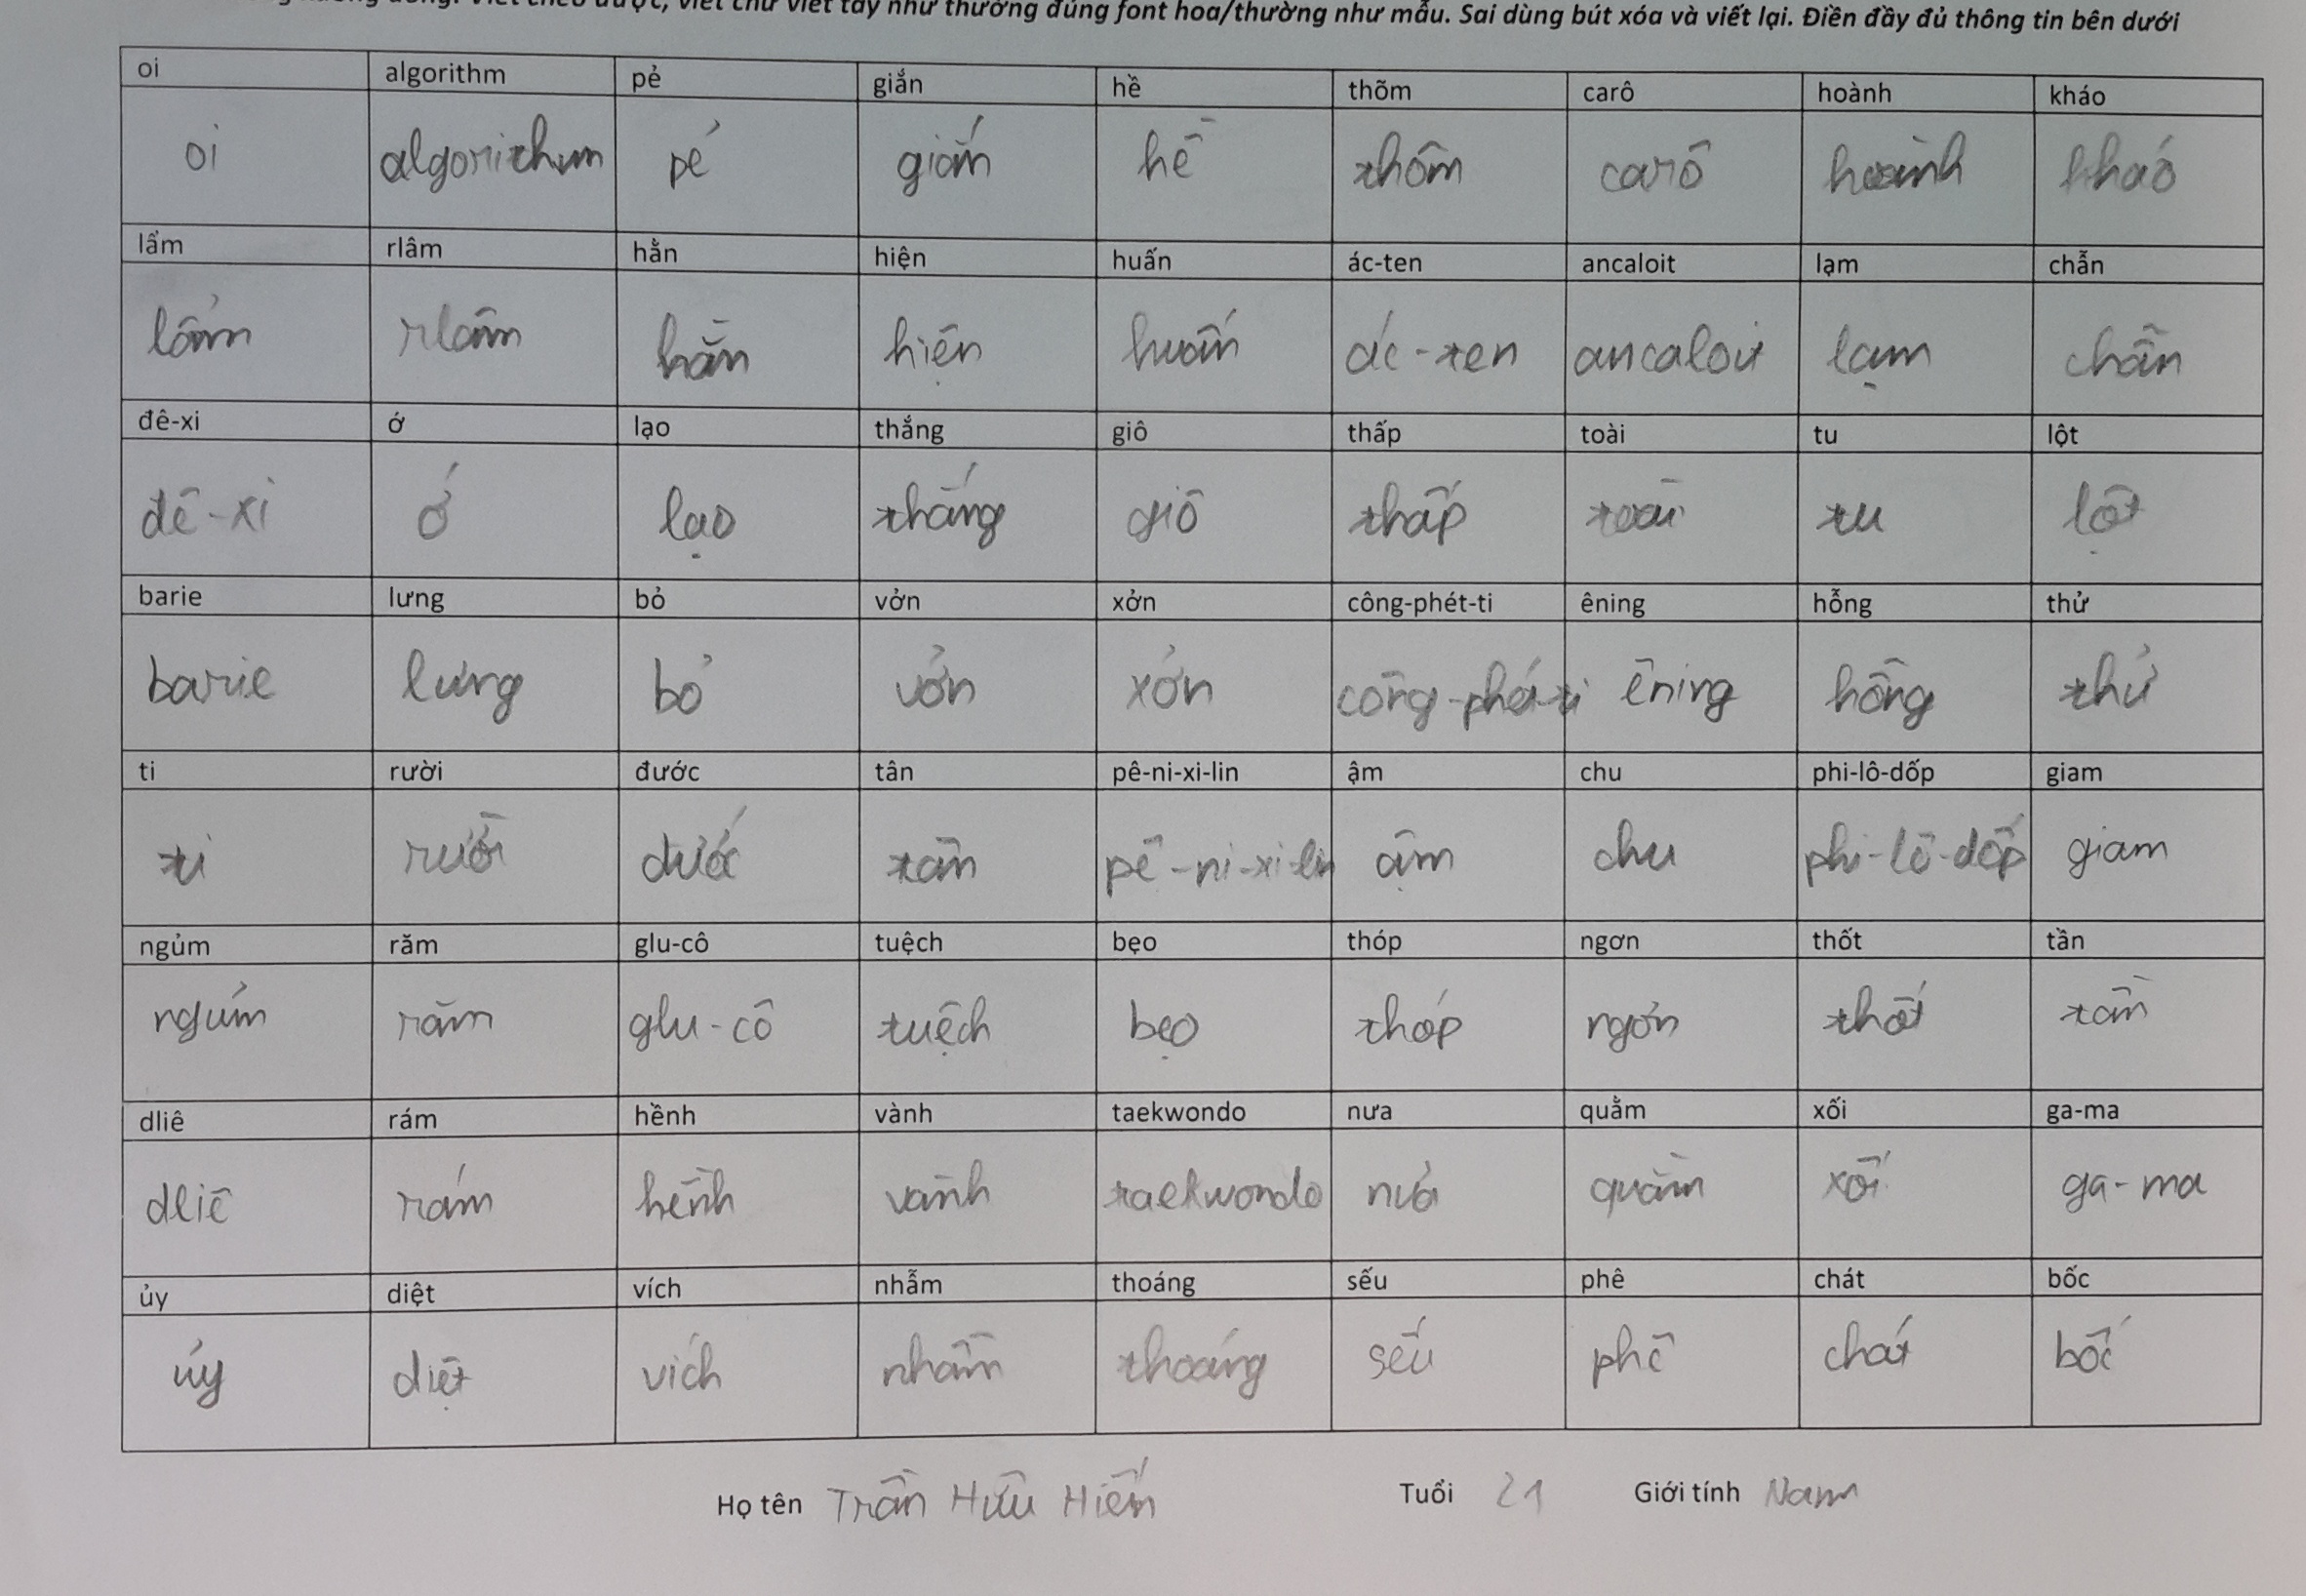 viết chữ viết tay như thường đúng font hoa/thường như mẫu. Sai dùng bút xóa và viết lại. Điền đầy đủ thông tin bên dưới
oi algorithm pẻ giắn hề thõm carô hoành kháo
oi algorithm pẻ giắn hề thõm carô hoành kháo
lẩm rlâm hằn hiện huấn ác-ten ancaloit lạm chẫn
lẩm rlâm hằn hiện huấn ác-ten ancaloit lạm chẫn
đê-xi ớ lạo thắng giô thấp toài tu lột
đê-xi ớ lạo thắng giô thấp toài tu lột
barie lưng bỏ vởn xởn công-phét-ti êning hỗng thử
barie lưng bỏ vởn xởn công-phét-ti êning hỗng thử
ti rười đước tân pê-ni-xi-lin ậm chu phi-lô-dốp giam
ti rười đước tân pê-ni-xi-lin ậm chu phi-lô-dốp giam
ngủm răm glu-cô tuệch bẹo thóp ngơn thốt tần
ngủm răm glu-cô tuệch bẹo thóp ngơn thốt tần
dliê rám hềnh vành taekwondo nưa quằm xối ga-ma
dliê rám hềnh vành taekwondo nưa quằm xối ga-ma
ủy diệt vích nhẫm thoáng sếu phê chát bốc
ủy diệt vích nhẫm thoáng sếu phê chát bốc
Họ tên Trần Hữu Hiến Tuổi 21 Giới tính Nam